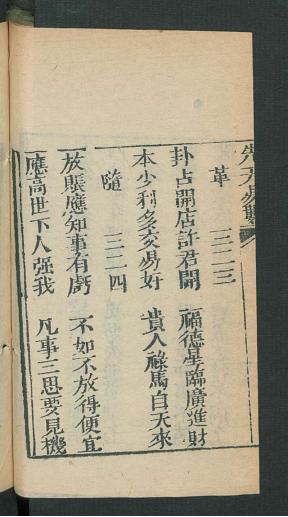 先天易數
革　三二三
卦占開店許君開　福德星臨廣進財
本少利多交易好　貴人祿馬自天來
隨　三二四
放賬應知事有虧　不如不放得便宜
應高世下人强我　凡事三思要見機